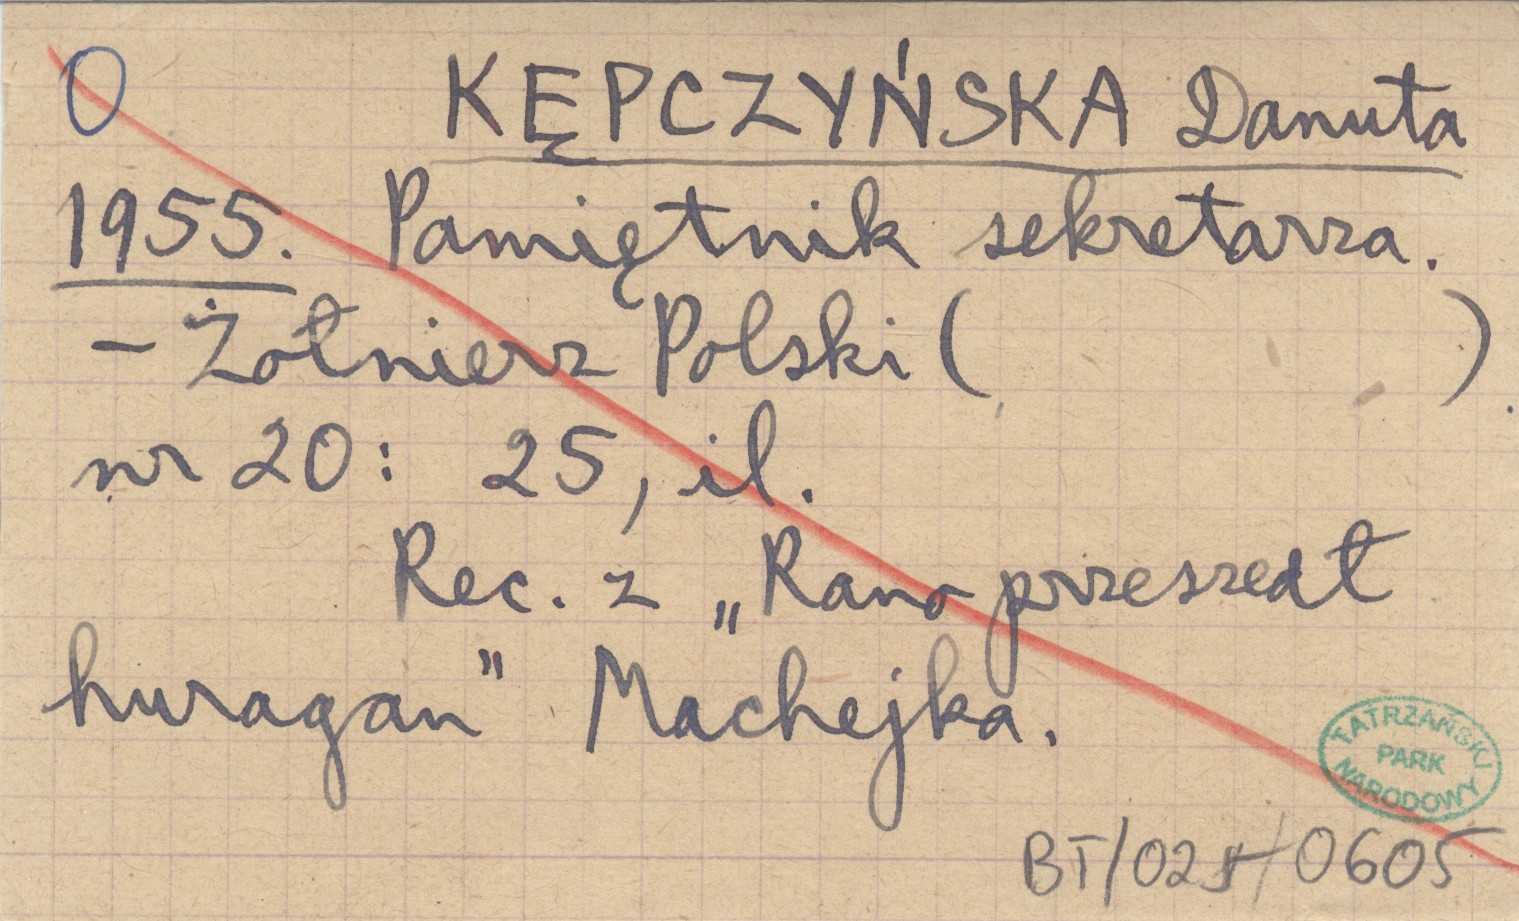 0 KĘPCZYŃSKA Danuta
1955. Pamiętnik sekretarza.
– Żołnierz Polski ( )
nr 20: 25, il.
Rec. z „Rano przeszedł
huragan” Machejka.
TATRZAŃSKI
PARK
NARODOWY